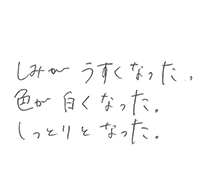 しみが うすくなった、
色が 白くなった。
しっとりと なった。